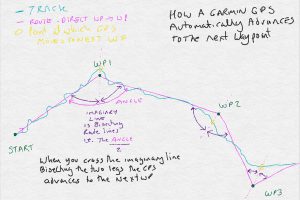 TRACK
ROUTE - DIRECT WP → WP
Point at which GPS
MOVES TO NEXT WP
HOW A GARMIN GPS
Automatically Advances
To the next Waypoint
WP1
ANGLE
IMAGINARY
LINE
is Bisecting
Route lines
i.e. The ANGLE
2
WP2
START
When you cross the imaginary line
Bisecting the two legs the GPS
advances to the Next WP
WP3